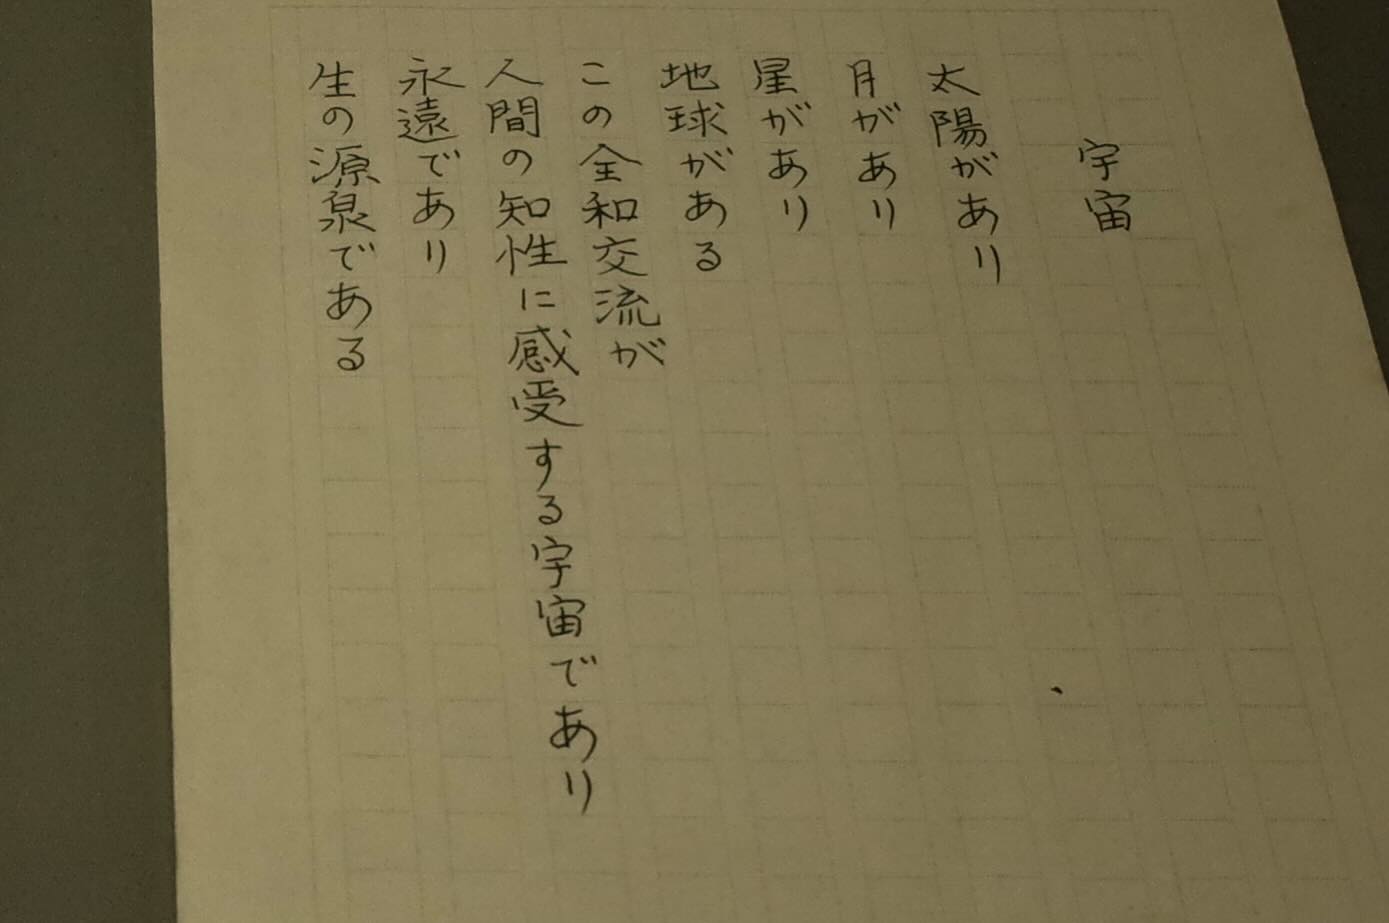 宇宙
太陽があり
月があり
星があり
地球がある
この全和交流が
人間の知性に感受する宇宙であり
永遠であり
生の源泉である